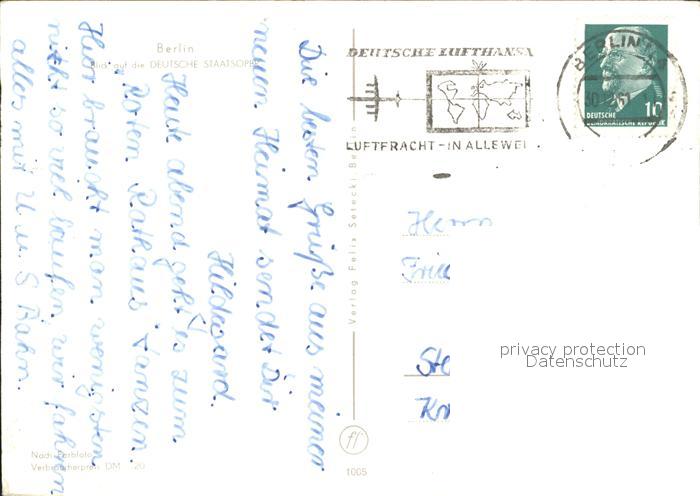 Berlin
Blick auf die DEUTSCHE STAATSOPER
Die besten Grüße aus meiner
neuen Heimat sendet Dir
Hildegard.
Heute abend geht es zum
"Roten Rathaus" tanzen.
Hier braucht man wenigstens
nicht so viel laufen, wir fahren
alles mit U u. S Bahn.
Nach Farbfoto
Verbraucherpreis DM 20
Verlag Felix Setecki, Berlin
1005
DEUTSCHE LUFTHANSA
LUFTFRACHT - IN ALLE WEL
BERLIN
10
DEUTSCHE
DEMOKRATISCHE REPUBLIK
Herrn
privacy protection
Datenschutz